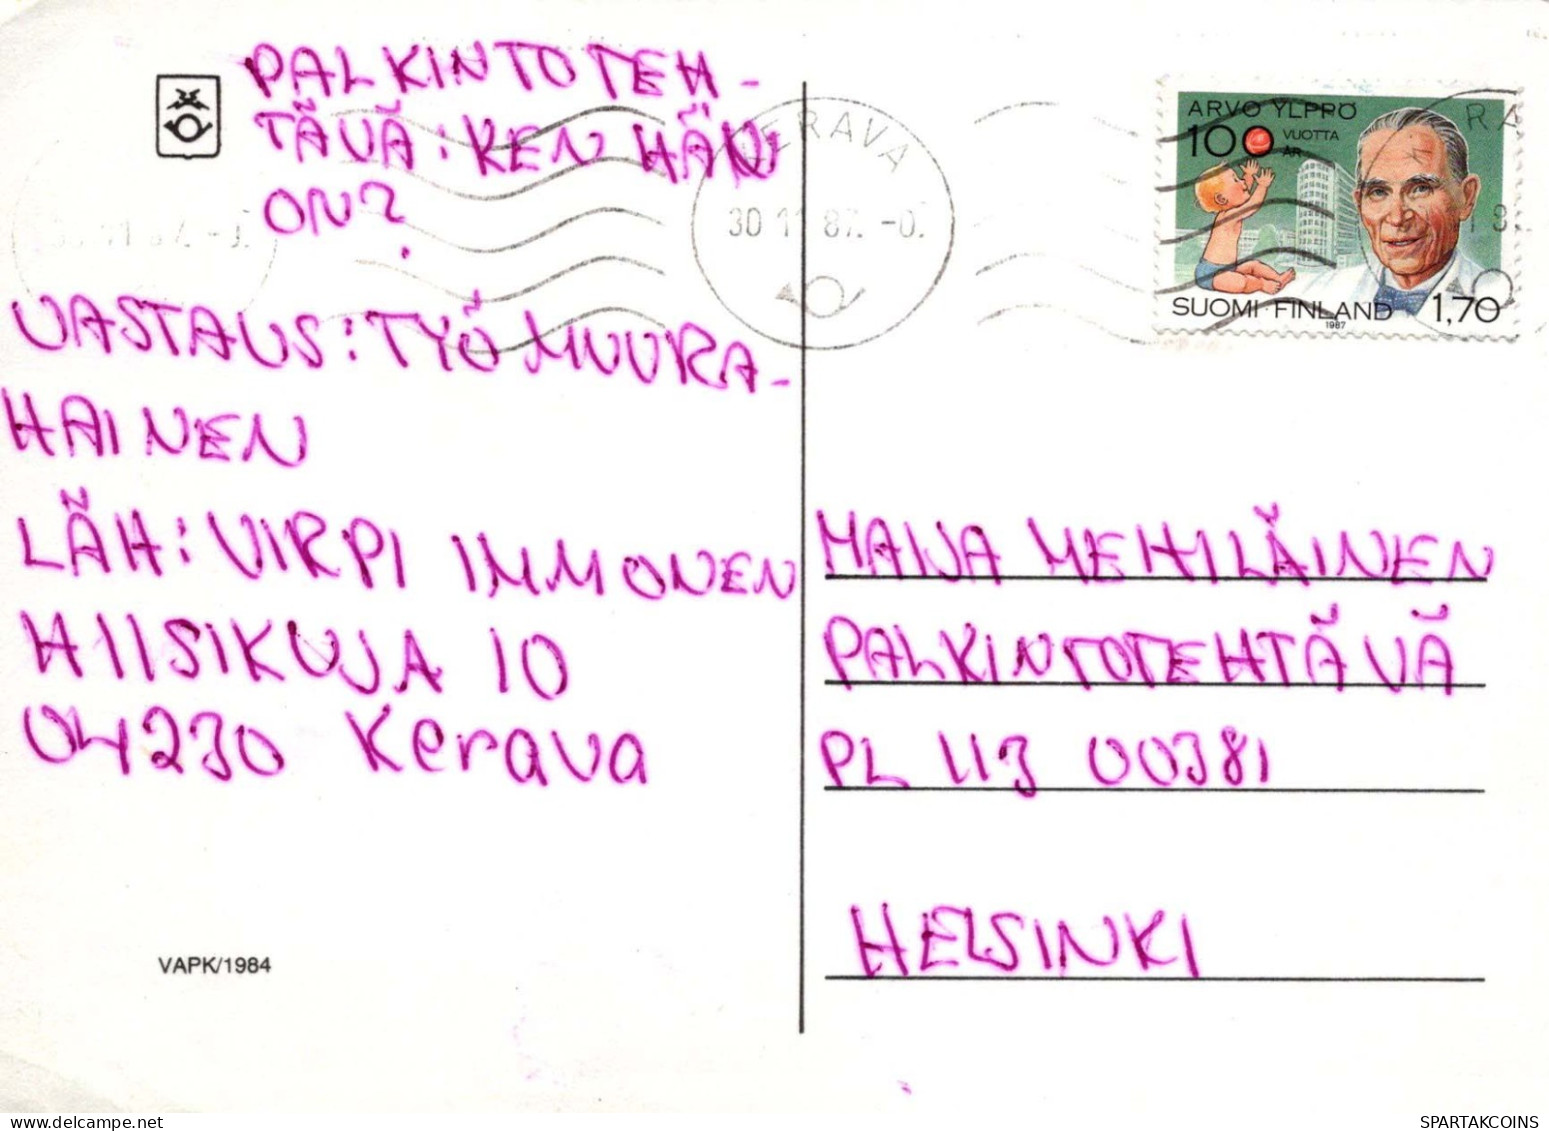 PALKINTOTEH-
TÄVÄ: KEN HÄN
ON?
VASTAUS: TYÖMUURA-
HAINEN
LÄH: VIRPI IMMONEN
HIISIKUJA 10
04230 Kerava
VAPK/1984
KERAVA
30 11 87. -0.
ARVO YLPPÖ
100 VUOTTA
ÅR
SUOMI FINLAND 1,70
1987
MAIJA MEHILÄINEN
PALKINTOTEHTÄVÄ
PL 113 00381
HELSINKI
delcampe.net
SPARTAKCOINS